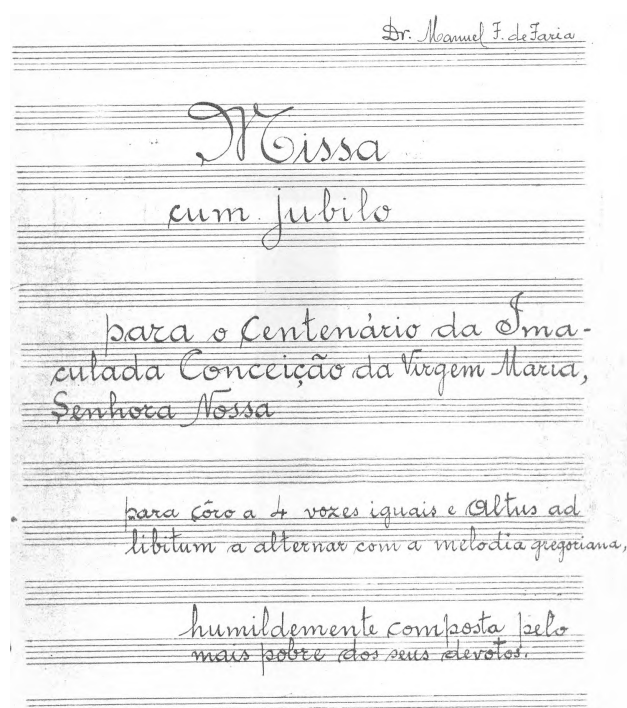 Dr. Manuel F. de Faria
Missa
cum jubilo
para o Centenário da Ima-
culada Conceição da Virgem Maria,
Senhora Nossa
para côro a 4 vozes iguais e Altus ad
libitum a alternar com a melodia gregoriana,
humildemente composta pelo
mais pobre dos seus devotos.